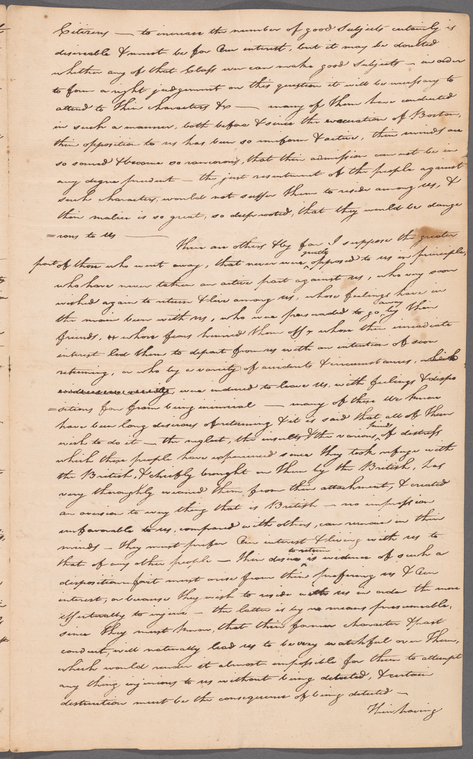 Citizens — to increase the number of good Subjects certainly is
desireable & must be for Our interest, but it may be doubted
whether any of that Class we can make good Subjects — in order
to form a right judgement on this question it will be necessary to
attend to their characters &c — many of them have conducted
in such a manner, both before & since the evacuation of Boston,
their opposition to us has been so uniform & active, their minds are
so soured & become so rancorous, that their admission can not be in
any degree prudent — the just resentment of the people against
such characters, would not suffer them to reside among us, &
their malice is so great, so deep rooted, that they would be dange
=rous to us —
Their are others & by far I suppose the greater
part of those who went away, that never were greatly opposed to us in principles,
who have never taken an active part against us, who very soon
wished again to return & live among us, whose feelings have in
the main been with us, who were persuaded to go away by their
friends, or whose fears hurried them off & where their immediate
interest led them to depart from us with an intention of soon
returning, or who by a variety of accidents & circumstances, which
were induced to leave us, with feelings & dispo
=sitions far from being inimical — many of these we know
have been long desirous of returning & it is said that all of them
wish to do it — the neglect, the insults & the various kinds of distress
which these people have experienced since they took refuge with
the British, & chiefly brought on them by the British, has
very thoroughly weaned them from their attachment, & created
an aversion to every thing that is British — no impression
unfavourable to us, compared with others, can remain in their
minds — they must prefer Our interest & living with us to
that of any other people — their desire to return is evidence of such a
disposition for it must arise from their preferring us & Our
interest, or because they wish to reside with us in order the more
effectually to injure — the latter is by no means presumeable,
since they must know, that their former character & past
conduct, will naturally lead us to be very watchful over Them,
which would render it almost impossible for them to attempt
any thing injurious to us without being detected, & certain
destruction must be the consequence of being detected —
Their having